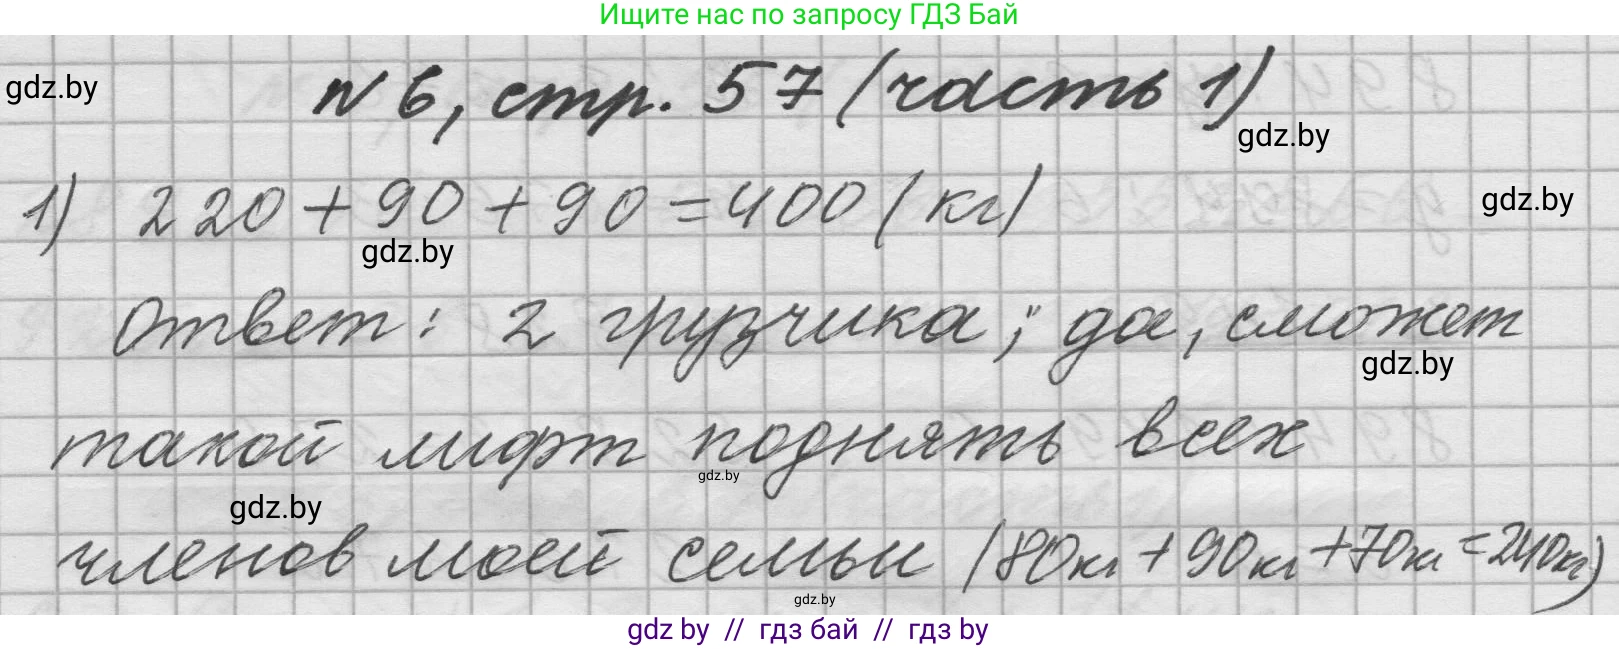 Ищите нас по запросу ГДЗ Бай
gdz.by
№ 6, стр. 57 (часть 1)
gdz.by
1) 220 + 90 + 90 = 400 (кг)
gdz.by
gdz.by
Ответ: 2 грузчика; да, сможет
gdz.by
такой лифт поднять всех
gdz.by
gdz.by
членов моей семьи (80кг + 90кг + 70кг = 240кг)
gdz.by
gdz by // гдз бай // гдз by